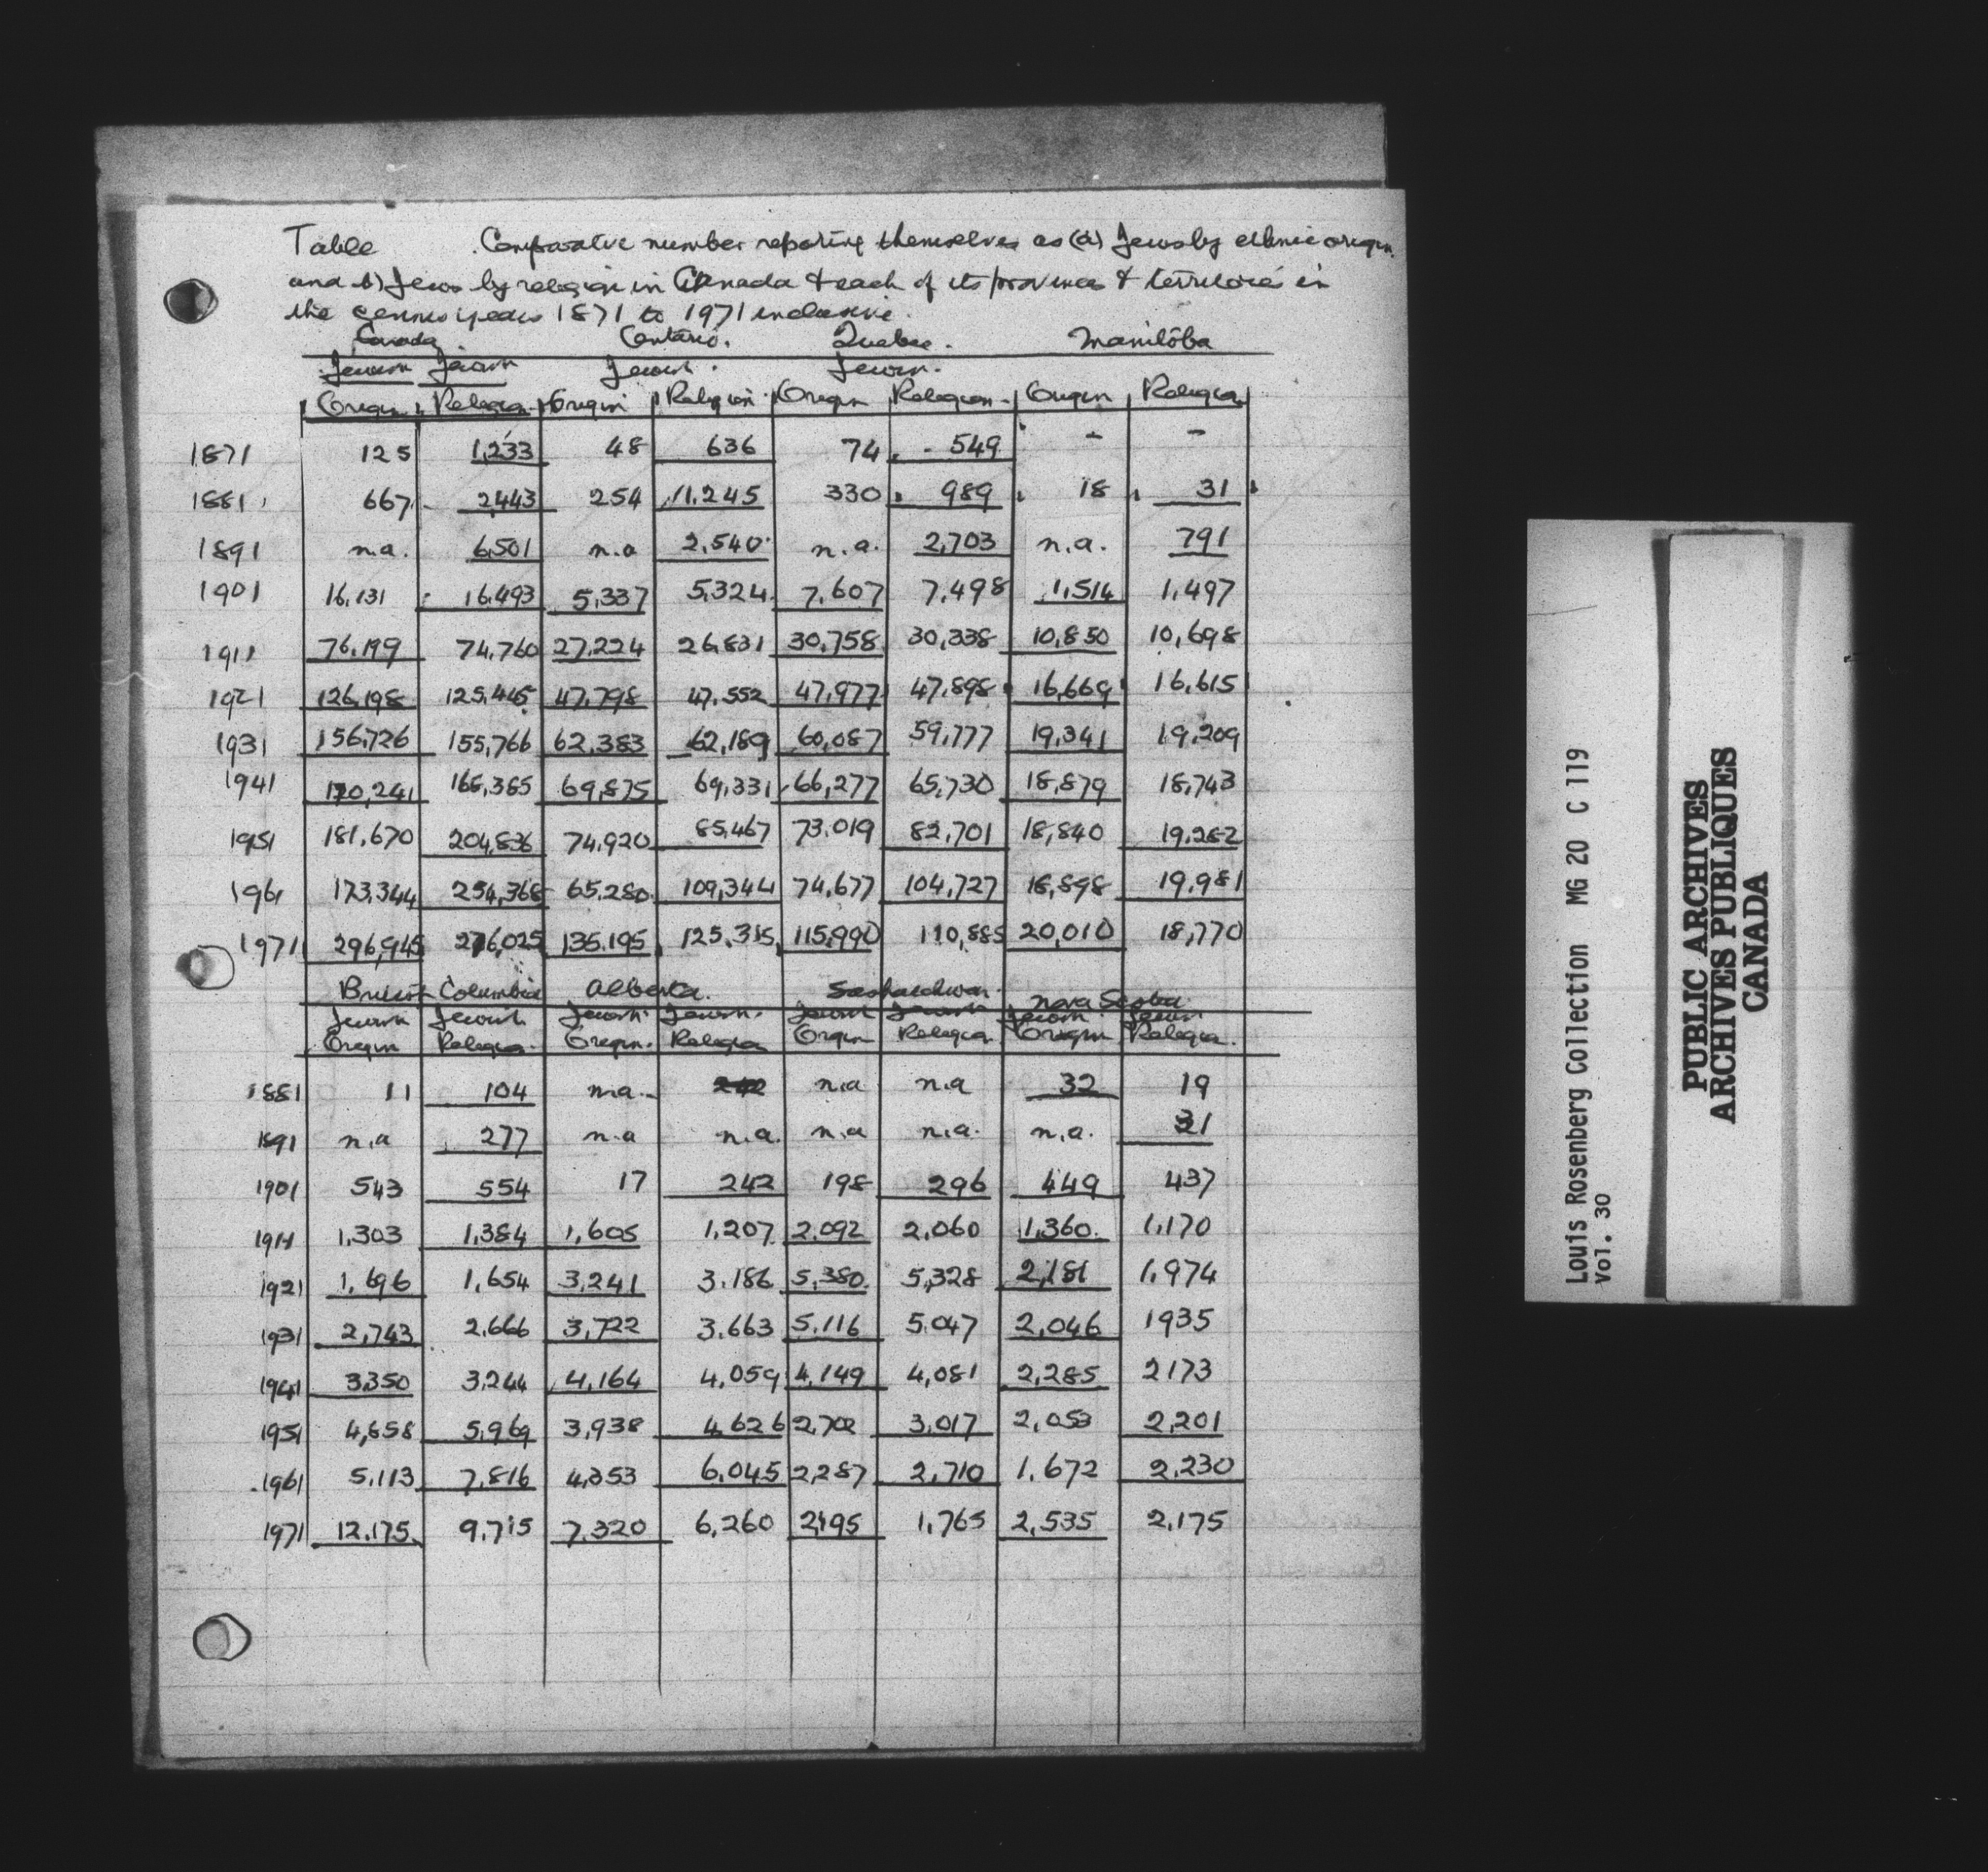 Table Comparative number reporting themselves as (a) Jews by ethnic origin
and b) Jews by religion in Canada & each of its provinces & territories in
the census years 1871 to 1971 inclusive.
Canada Ontario. Quebec. Manitoba
Jewish Jewish Jewish. Jewish.
Origin Religion Origin Religion Origin Religion Origin Religion
1871 125 1,233 48 636 74 549 - -
1881 667 2443 254 11.245 330 989 18 31
1891 n.a. 6,501 n.a 2,540 n.a. 2,703 n.a. 791
1901 16,131 16,493 5,337 5,324 7,607 7,498 1,514 1,497
1911 76,199 74,760 27,224 26,831 30,758 30,338 10,850 10,698
1921 126,198 125,445 47,798 47,552 47,977 47,898 16,669 16,615
1931 156,726 155,766 62,383 62,189 60,087 59,777 19,341 19,209
1941 170,241 168,385 69,875 69,331 66,277 65,730 18,879 18,743
1951 181,670 204,836 74,920 85,467 73,019 82,701 18,840 19,282
1961 173,344 254,368 65,280 109,344 74,677 104,727 18,898 19,981
1971 296,945 276,025 135,195 125,315 115,990 110,885 20,010 18,770
British Columbia Alberta. Saskatchewan. Nova Scotia
Jewish Jewish Jewish Jewish Jewish Jewish Jewish Jewish
Origin Religion Origin. Religion Origin Religion Origin Religion.
1881 11 104 n.a. 242 n.a n.a 32 19
1891 n.a 277 n.a n.a. n.a n.a. n.a. 31
1901 543 554 17 242 198 296 449 437
1911 1,303 1,384 1,605 1,207 2,092 2,060 1,360. 1,170
1921 1,696 1,654 3,241 3,186 5,380 5,328 2,181 1,974
1931 2,743 2,666 3,722 3,663 5,116 5,047 2,046 1935
1941 3350 3,244 4,164 4,059 4,149 4,081 2,285 2173
1951 4,858 5,969 3,938 4,626 2,702 3,017 2,053 2,201
1961 5,113 7,816 4,353 6,045 2,287 2,710 1,672 2,230
1971 12,175 9,715 7,320 6,260 2195 1,765 2,535 2,175
Louis Rosenberg Collection MG 20 C 119
Vol. 30
PUBLIC ARCHIVES
ARCHIVES PUBLIQUES
CANADA